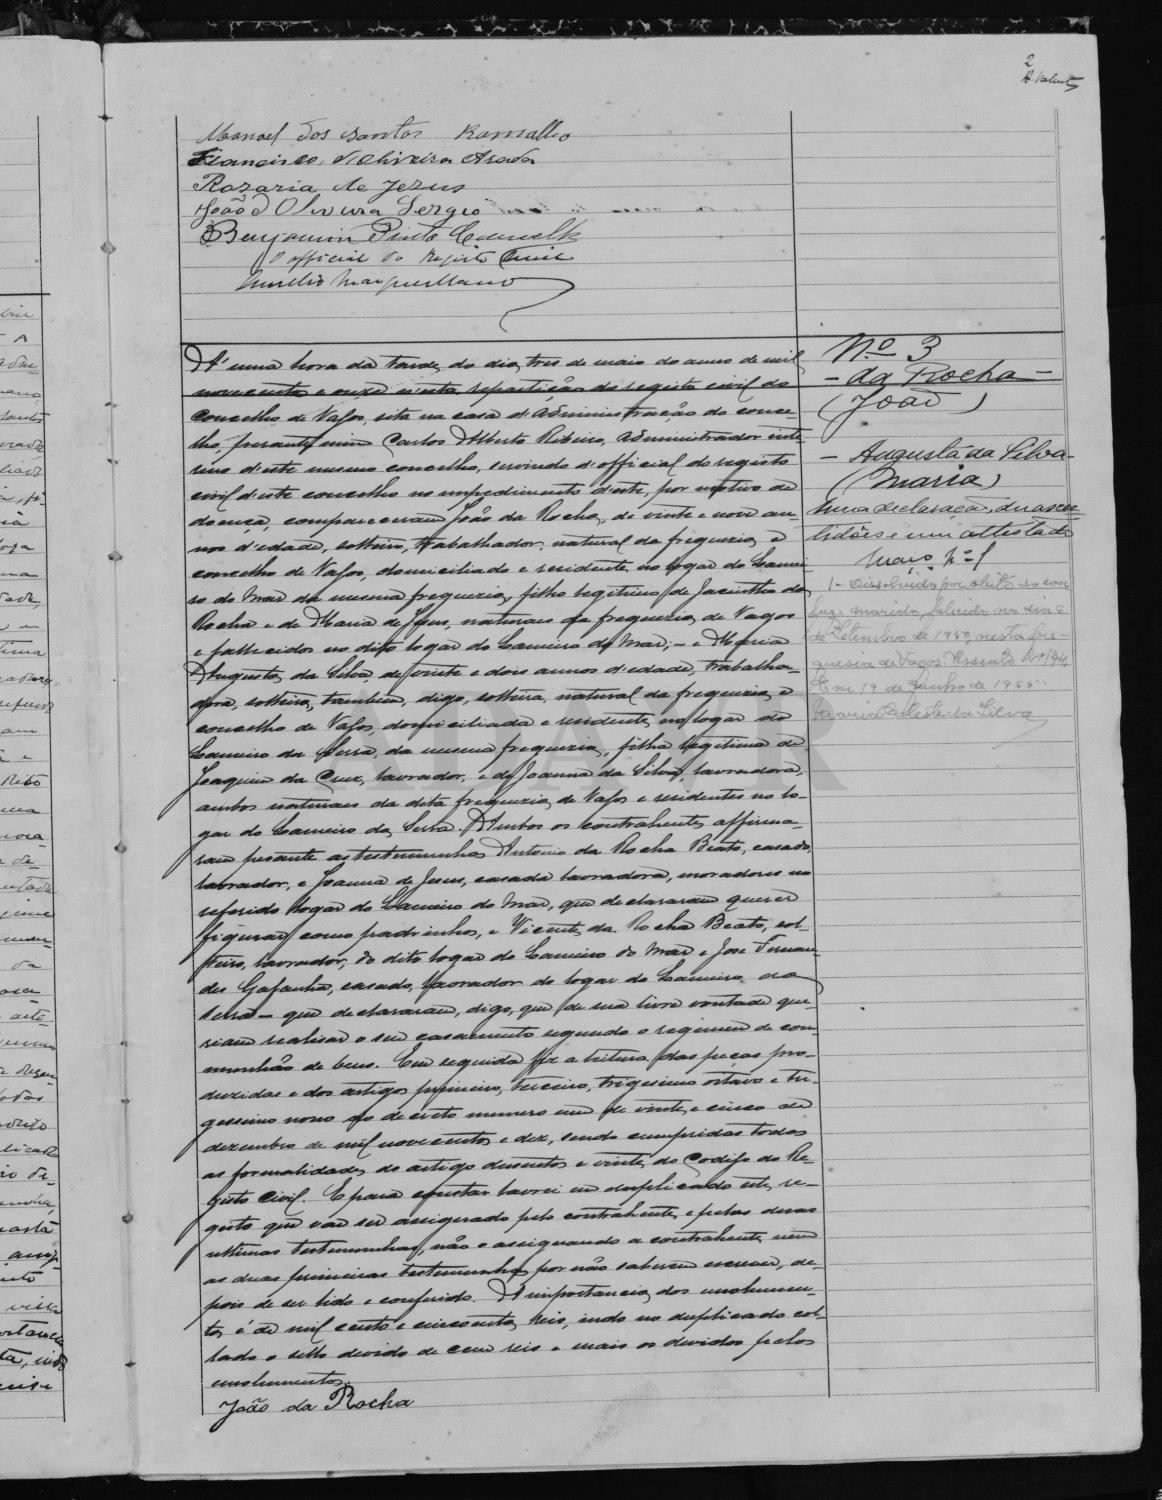 2
Manoel dos Santos Ramalho
Francisco d'Oliveira
Rozaria de Jezus
João d'Oliveira Sergio
Benjamim Pinto
O official do Registo Civil
Aurelio
Nº 3
- da Rocha -
(João)
- Augusta da Silva -
(Maria)
Uma declaração, duas cer
tidões e um attestado
Maço nº 1
1- Dissolvido por obito do con
juge marido, falecido no dia
de Setembro de 1950 nesta fre-
guesia de Vagos. Assento nº
Em 19 de Junho de 1955
Maria Celeste da Silva
Á uma hora da tarde, do dia tres de maio do anno de mil
novecentos e onze n'esta repartição do registo civil do
concelho de Vagos, sita na casa d'Administração do conce-
lho, perante mim Carlos Alberto Ribeiro, Administrador inte-
rino d'este mesmo concelho, servindo d'official do registo
civil d'este concelho no impedimento d'este, por motivo de
doença, compareceram João da Rocha, de vinte e nove an-
nos d'edade, solteiro, trabalhador, natural da freguezia e
concelho de Vagos, domiciliado e residente no logar do Lamei
ro do Mar da mesma freguezia, filho legitimo de Jacintho da
Rocha e de Maria de Jesus, naturaes da freguezia de Vagos
e fallecidos no dito logar do Lameiro do Mar; - e Maria
Augusta da Silva, de vinte e dois annos d'edade, trabalha-
dora, solteira, tambem, digo, solteira, natural da freguezia e
concelho de Vagos, domiciliada e residente no logar do
Lameiro da Serra, da mesma freguezia, filha legitima de
Joaquim da Cruz, lavrador, e de Joanna da Silva, lavradora,
ambos naturaes da dita freguezia de Vagos e residentes no lo-
gar do Lameiro da Serra. Ambos os contrahentes affirma-
ram perante as testemunhas Antonio da Rocha Beato, casado,
lavrador, e Joanna de Jesus, casada lavradora, moradores no
referido logar do Lameiro do Mar, que declararam querer
figurar como padrinhos, e Vicente da Rocha Beato, sol-
teiro, lavrador, do dito logar do Lameiro do Mar e José Fernan-
des Gafanha, casado, lavrador do logar do Lameiro da
Serra - que declararam, digo, que de sua livre vontade que-
riam realisar o seu casamento segundo o regimen de com-
munhão de bens. Em seguida fiz a leitura das peças pro-
duzidas e dos artigos primeiro, terceiro, trigesimo oitavo e tri-
gessimo nono do decreto numero um de vinte e cinco de
dezembro de mil novecentos e dez, sendo cumpridas todas
as formalidades do artigo duzentos e vinte do Codigo do Re-
gisto Civil. E para constar lavrei em duplicado este re-
gisto que vae ser assignado pelo contrahente e pelas duas
ultimas testemunhas, não o assignando a contrahente nem
as duas primeiras testemunhas por não saberem escrever, de-
pois de ser lido e conferido. A importancia dos emolumen-
tos é de mil cento e cincoenta reis, indo no duplicado col-
lado o sello devido de cem reis e mais os devidos pelos
emolumentos.
João da Rocha